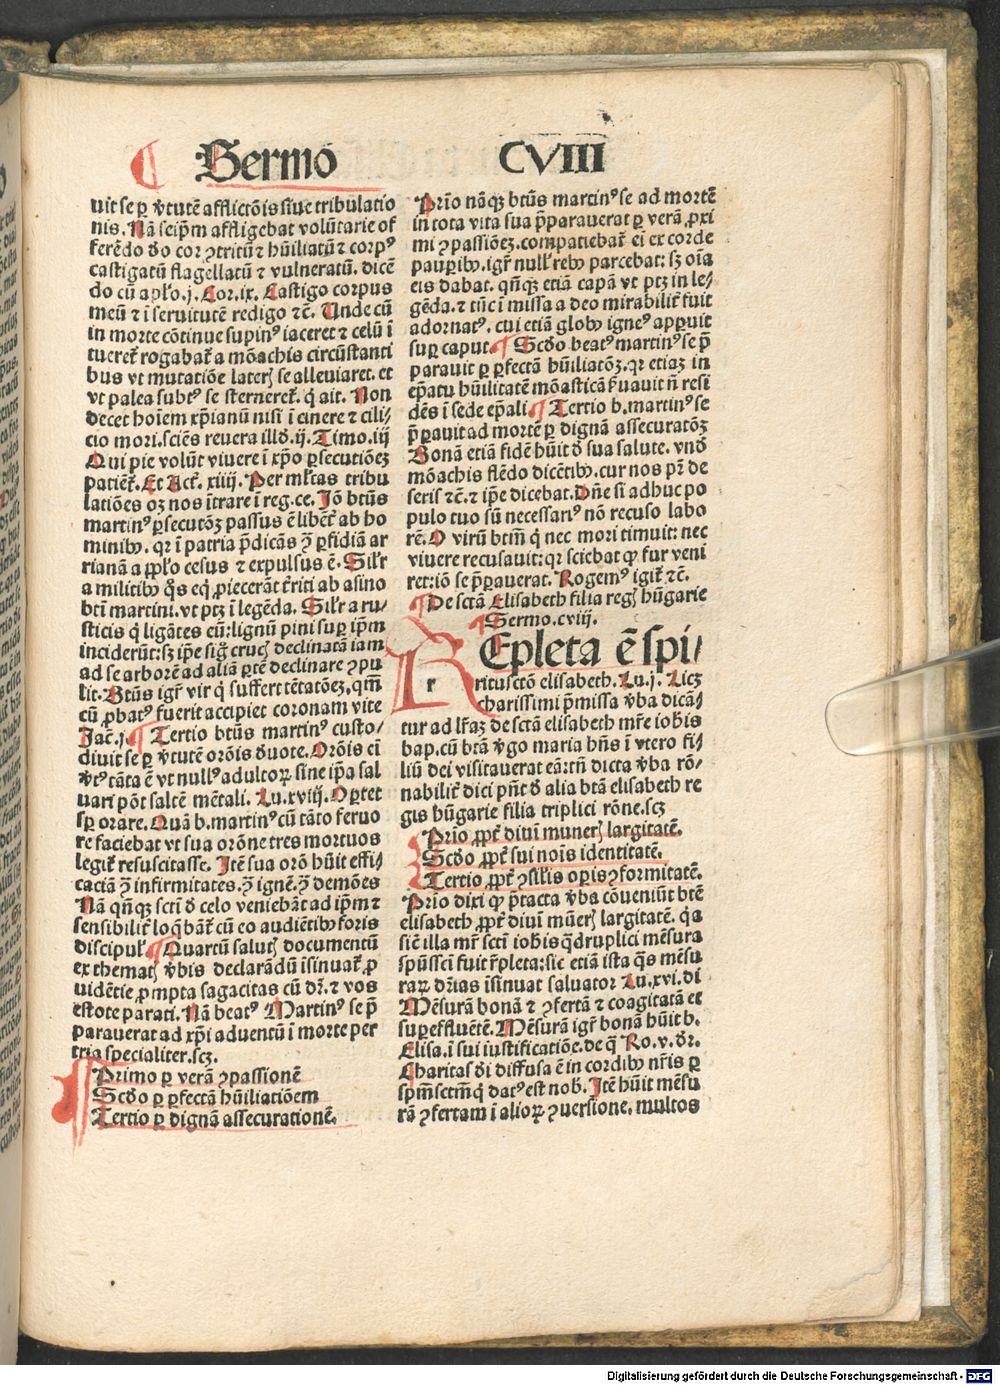 Sermo CVIII
uit se ꝑ v̾tutē afflictõis siue tribulatio
nis. Nā seip̄m affligebat volūtarie of
ferēdo đo cor ↄtritū ⁊ hūiliatū ⁊ corpꝰ
castigatū flagellatū ⁊ vulneratū. dicē
do cū apl'o. j. Cor. ix. Castigo corpus
meū ⁊ ī seruitutē redigo ⁊c̄. Unde cū
in morte cōtinue supinꝰ iaceret ⁊ celū ī
tueret̄ rogabat̄ a mōachis circūstanti
bus vt mutatiōe laterꝭ se alleuiaret. et
vt palea subtꝰ se sterneret̄. q̇ ait. Non
decet hoīem xp̄ianū nisi ī cinere ⁊ cili-
cio mori. sciēs reuera illđ. ij. Timo. iij
Qui pie volūt viuere ī xp̄o ꝑsecutiōeꝫ
patiēt̄. Et Act̄. xiiij. Per ml̄tas tribu
latiōes oꝫ nos ītrare ī reg. ce. Iō btūs
martinꝰ ꝑsecutōꝫ passus ē libēt̄ ab ho
minibꝰ. qr ī patria p̄dicās ꝯ̄ ꝑfidiā ar
rianā a ppl'o cesus ⁊ expulsus ē. Sil'r
a militibꝰ q̄s eqꝰ ꝓiecerāt t̄riti ab asino
btī martini. vt ptꝫ ī legēda. Sil'r a ru-
sticis q̇ ligātes eū: lignū pini suꝑ ip̄m
inciderūt: sꝫ ip̄e sig̊ crucꝭ declinatā iam
ad se arborē ad aliā ꝑtē declinare ↄpu
lit. Btūs igr̄ vir q̇ suffert tētatōeꝫ, qm̄
cū ꝓbatꝰ fuerit accipiet coronam vite
Iac̄. j. ¶ Tertio btūs martinꝰ custo-
diuit se ꝑ v̾tutē orōis đuote. Orōis ei
v̾tꝰ tāta ē vt nullꝰ adultoꝝ sine ip̄a sal
uari pōt saltē mētali. Lu. xviij. Optet
sꝑ orare. Quā b. martinꝰ cū tāto feruo
re faciebat vt sua orōne tres mortuos
legit̄ resuscitasse. Itē sua orō hūit effi-
caciā ꝯ̄ infirmitates. ꝯ̄ ignē. ꝯ̄ demōes
Nā qn̄qꝫ sctī đ celo veniebāt ad ip̄m ⁊
sensibilit̄ loq̄bāt̄ cū eo audiētibꝰ foris
discipul'. ¶ Quartū salutꝭ documentū
ex thematꝭ v̾bis declarādū īsinuat̄ ꝓ
uidētie ꝓmpta sagacitas cū dr̄. ⁊ vos
estote parati. Nā beatꝰ Martinꝰ se p̄
parauerat ad xp̄i aduentū ī morte per
tria specialiter. scꝫ.
Primo ꝑ verā ↄpassionē
Scđo ꝑ ꝑfectā hūiliatiōem
Tertio ꝑ dignā assecurationē.
Prīo nāqꝫ btūs martinꝰ se ad mortē
in tota vita sua p̄parauerat ꝑ verā, ꝓxi
mi ↄpassiōeꝫ. compatiebat̄ ei ex corde
pauꝑibꝰ. igr̄ null' rebꝰ parcebat: sꝫ oīa
eis dabat. qn̄qꝫ etiā capā vt ptꝫ in le-
gēda. ⁊ tūc ī missa a deo mirabilit̄ fuit
adornatꝰ. cui etiā globꝰ igneꝰ apꝑuit
suꝑ caput. ¶ Scđo beatꝰ martinꝰ se p̄
parauit ꝑ ꝑfectā hūiliatōꝫ. qr etiaꝫ in
ep̄atu hūilitatē mōasticā ẜuauit n̄ resi
dēs ī sede ep̄ali. ¶ Tertio b. martinꝰ se
p̄ꝑauit ad mortē ꝑ dignā assecuratōꝫ
Bonā etiā fidē hūit đ sua salute. vnđ
mōachis flēdo dicētibꝰ. cur nos pr̄ de
seris ⁊c̄. ⁊ ip̄e dicebat. Dn̄e si adhuc po
pulo tuo sū necessariꝰ nō recuso labo
rē. O virū btm̄ q̇ nec mori timuit: nec
viuere recusauit: qr sciebat ꝙ fur veni
ret: iō se p̄ꝑauerat. Rogemꝰ igit̄ ⁊c̄.
¶ De sctā Elisabeth filia regꝭ hūgarie
¶ Sermo. cviij.
REpleta ē spi-
ritusctō elisabeth. Lu. j. Licꝫ
charissimi p̄missa v̾ba dicā-
tur ad lr̄aꝫ de sctā elisabeth mr̄e iohīs
bap. cū btā v̾go maria hn̄s ī vtero fi-
liū dei visitauerat eā: tn̄ dicta v̾ba rō-
nabilit̄ dici pn̄t đ alia btā elisabeth re
gis hūgarie filia triplici rōne. scꝫ
Prīo ꝓpt̄ diuinī munerꝭ largitatē.
Scđo ꝓpt̄ sui noīs identitatē.
Tertio ꝓpt̄ ↄsil'is oꝑis ↄformitatē.
Prīo dixi ꝙ p̄tacta v̾ba cōueniūt btē
elisabeth ꝓpt̄ diuinī mūerꝭ largitatē. qa
sic̄ illa mr̄ sctī iohīs q̄druplici mēsura
spūssctī fuit r̄pleta: sic etiā ista q̄s mēsu
raꝝ dr̄ias īsinuat saluator Lu. xvi. di
Mēsurā bonā ⁊ ↄfertā ⁊ coagitatā et
suꝑeffluētē. Mēsurā igr̄ bonā hūit b.
Elisa. ī sui iustificatiōe. de q̄ Ro. v. dr̄.
Charitas đi diffusa ē in cordibꝰ nr̄is ꝑ
spm̄sctm̄ q̇ datꝰ est nob̄. Itē hūit mēsu
rā ↄfertam ī alioꝝ ↄuersione. multos
Digitalisierung gefördert durch die Deutsche Forschungsgemeinschaft - DFG